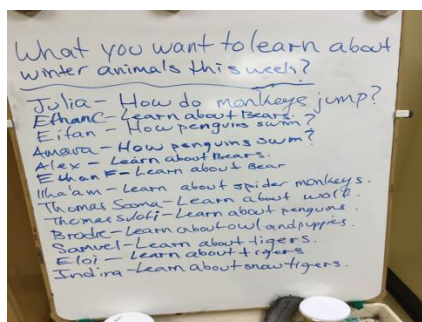 What you want to learn about
winter animals this week?
Julia - How do monkeys jump?
Ethan C - Learn about Bears.
Eifan - How penguins swim?
Amara - How penguins swim?
Alex - Learn about Bears.
Ethan F - Learn about Bear
Ilha'am - Learn about spider monkeys.
Thomas - Learn about wolf.
Thomas - Learn about penguins.
Brodie - Learn about owl and puppies.
Samuel - Learn about tigers.
Eloi - Learn about tigers
Indira - Learn about snow tigers.